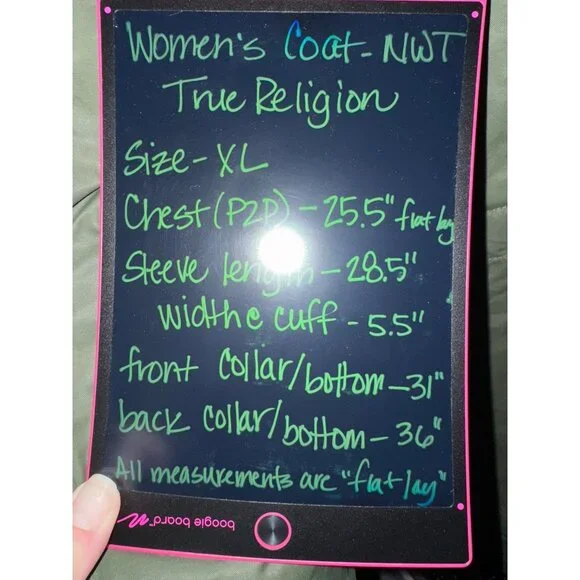 Women's Coat - NWT
True Religion
Size - XL
Chest (P2P) - 25.5" flat lay
Sleeve length - 28.5"
width @ cuff - 5.5"
front collar/bottom - 31"
back collar/bottom - 36"
All measurements are "flat lay"
boogie board™